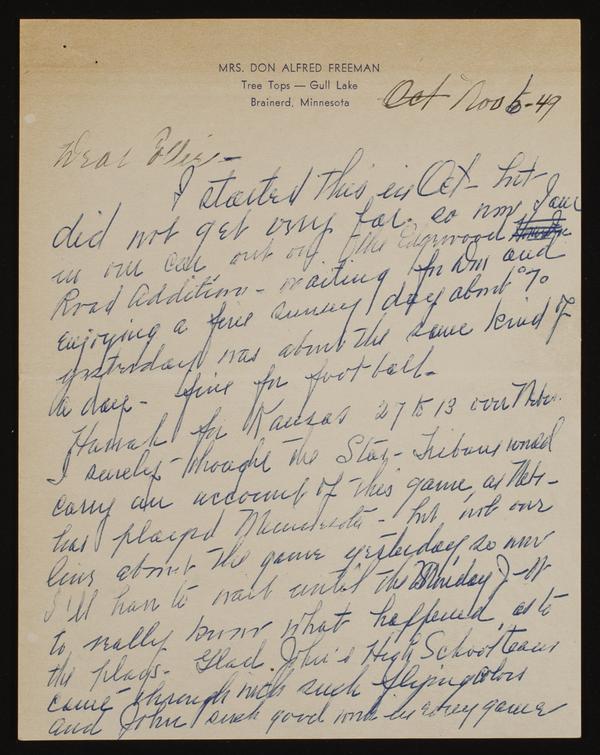 MRS. DON ALFRED FREEMAN
Tree Tops — Gull Lake
Brainerd, Minnesota
Oct Nov 6-49
Dear
I started this in Oct - but
did not get very far. so now I am
in our car out on the Edgewood
Road Addition - waiting for Don and
enjoying a fine sunny day about 70
yesterday was about the same kind of
a day - fine for football.
Hurrah for Kansas 27 to 13 over Nebr.
I surely thought the Star-Tribune would
carry an account of this game as Neb-
has played Minnesota - but not one
line about the game yesterday so now
I'll have to wait until the Monday J-W
to really know what happened, as to
the plays - Glad John's High School team
came through with such flying colors
and John such good work in every game